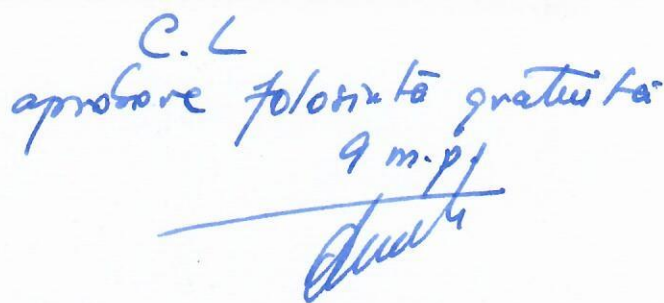 C.L
aprobare folosință gratuită
9 m.p.